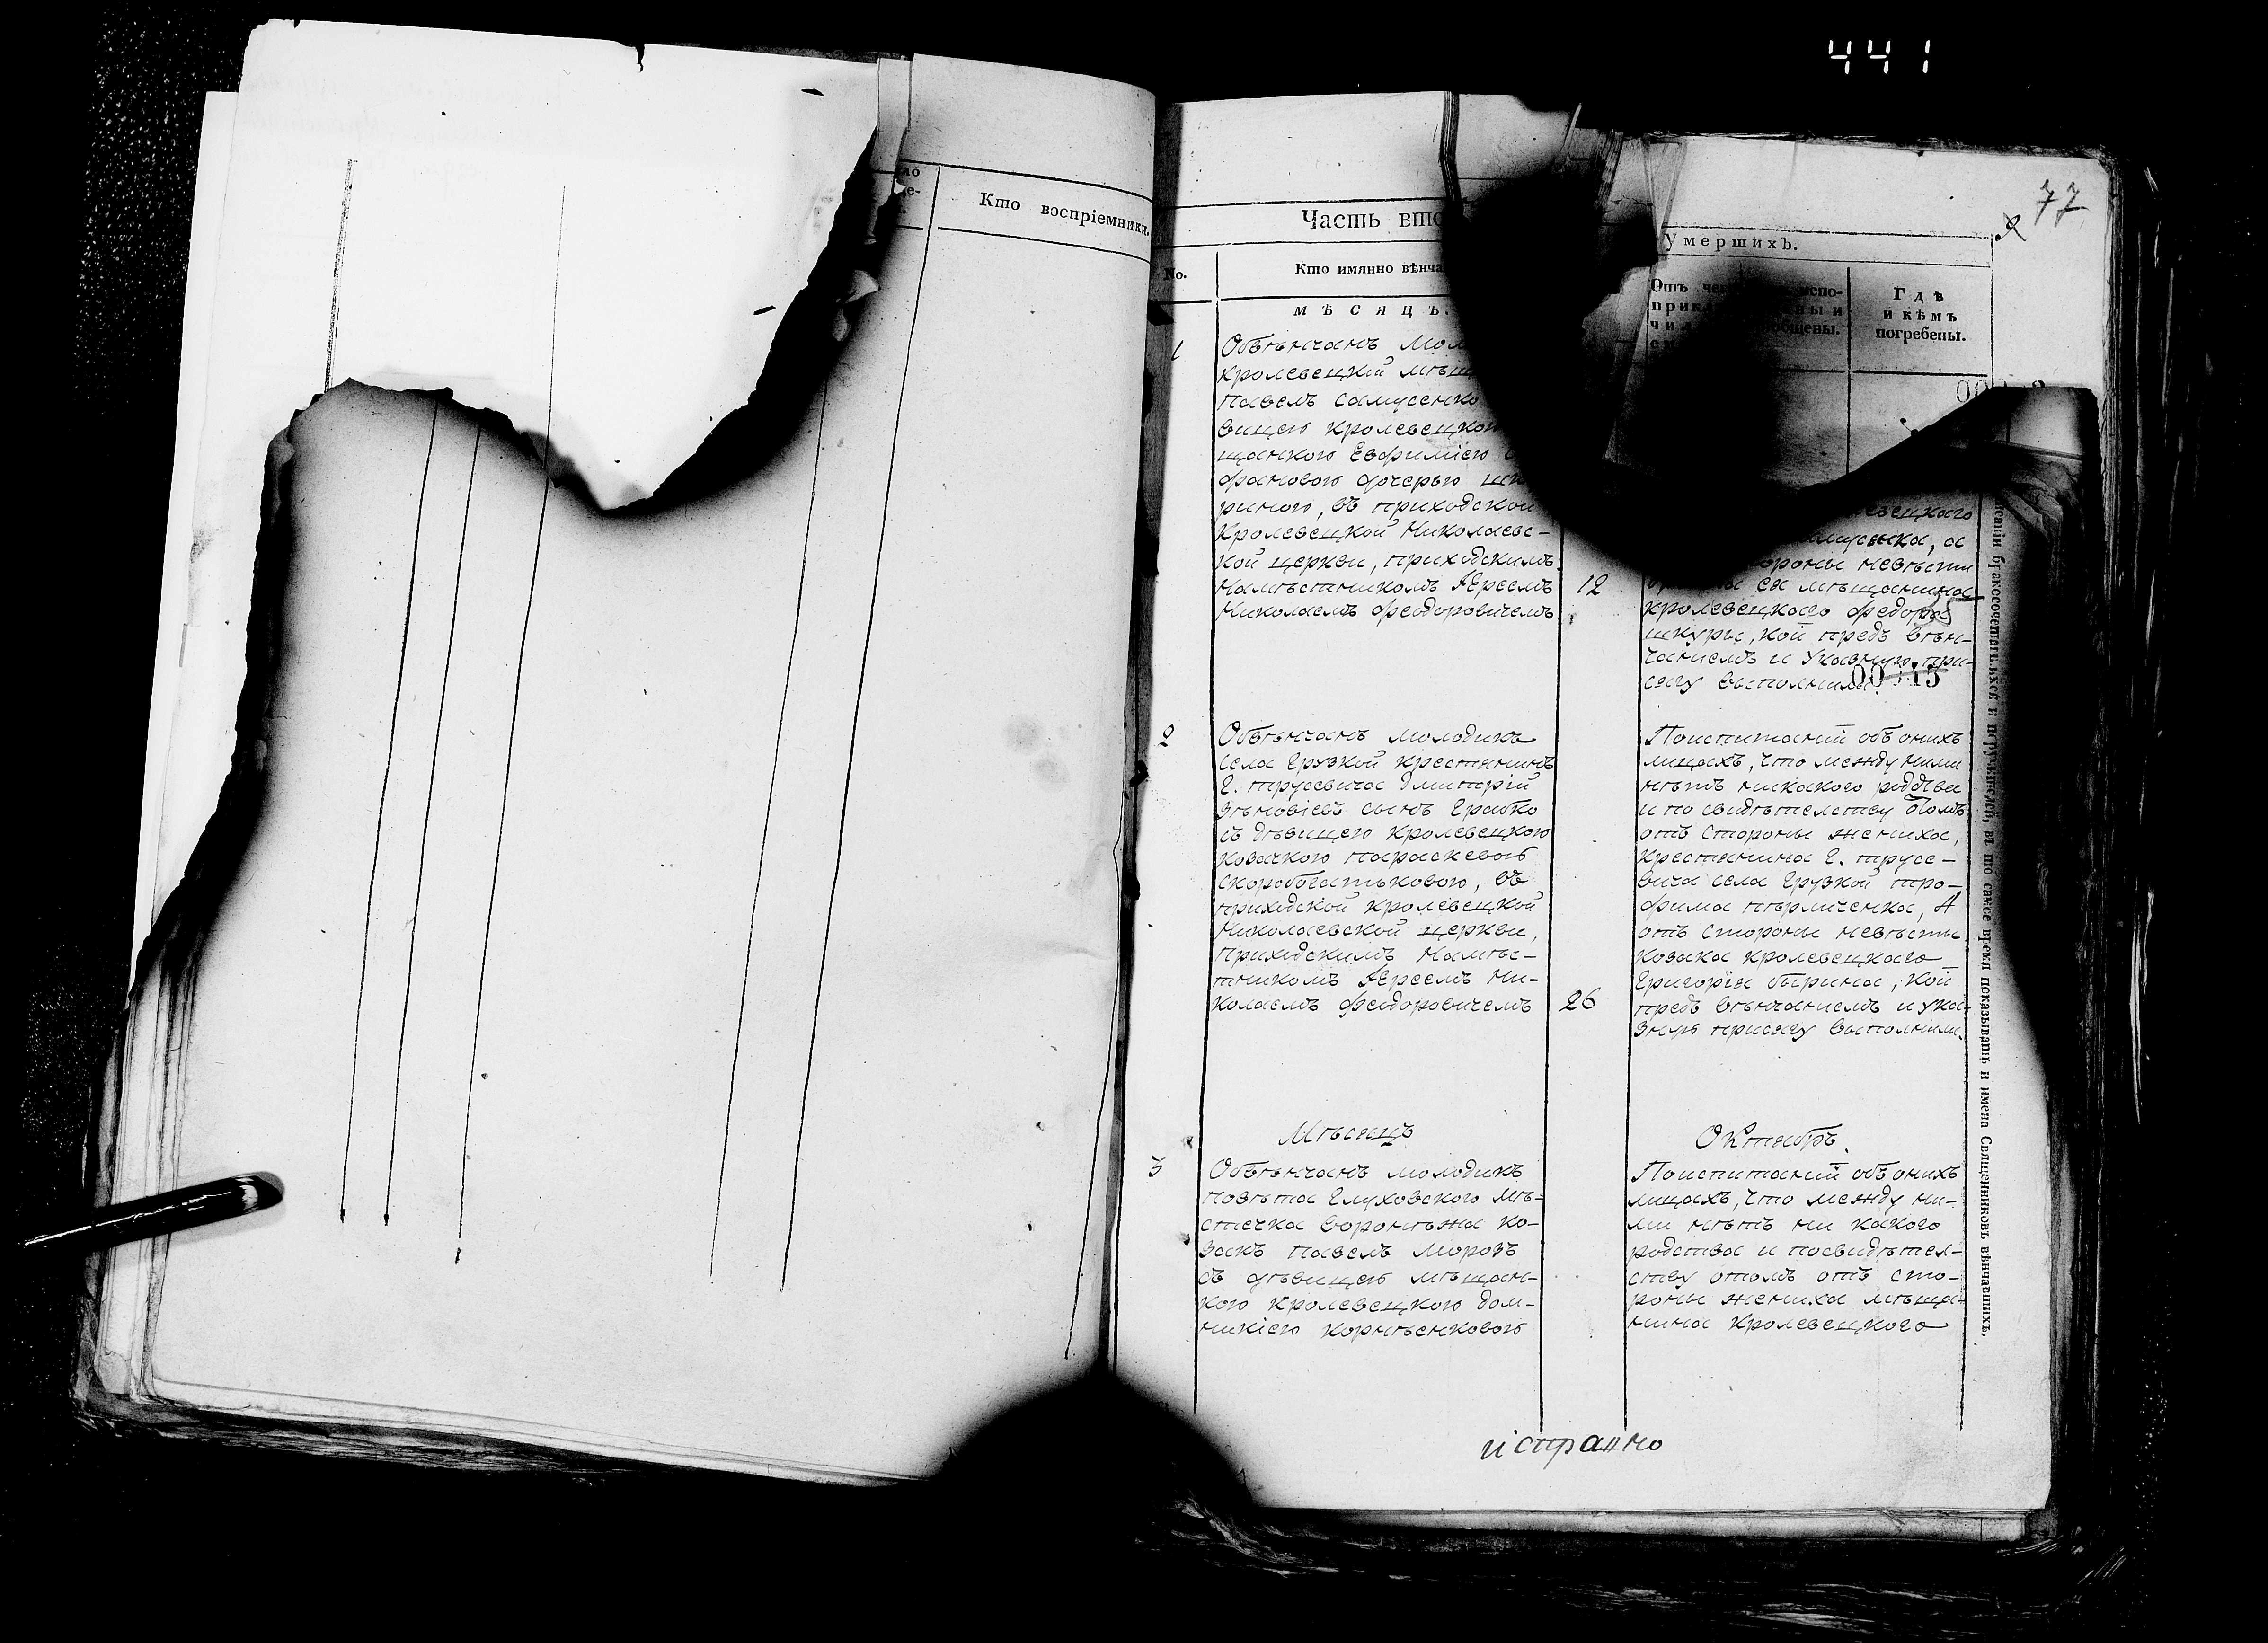 441
77
Кто воспріемники.
Часть вто
умершихъ.
No.
Кто имянно вѣнча
Гдѣ
и кѣмъ
погребены.
мѣсяцъ.
1
Обвѣнчанъ мол
кролевецкій мѣщ
Павелъ Самусенко
вицею кролевецкою
щанкою Евфиміею
фановою дочерью шк
риною, въ приходской
Кролевецкой Николаевс-
кой церкви, приходскимъ
Намѣстникомъ Іереемъ
Николаемъ Феодоровичемъ
12
евецкаго
амусенка, а
ороны невѣсти
ея мѣщанина
кролевецкаго Федора
шкуры, кой предъ вѣн-
чаніемъ и Указную при-
сягу выполнили.
2
Обвѣнчанъ молодикъ
села Грузкой крестянинъ
Г. Трусевича Дмитрій
Зѣновіевъ сынъ Грибко
съ дѣвицею кролевецкою
козачкою Параскевою
скоробогатьковою, въ
приходской кролевецкой
Николаевской церкви,
Приходскимъ Намѣс-
тникомъ Іереемъ Ни-
колаемъ Феодоровичемъ
26
Поиспитаній объ онихъ
лицахъ, что между ними
нѣтъ никакого родства
и по свидѣтелству о томъ
отъ стороны жениха,
крестянина Г. трусе-
вича села Грузкой тро-
фима , А
отъ стороны невѣсты
козака кролевецкаго
Григорія бирина, кой
предъ вѣнчаніемъ и ука-
зную присягу выполнили.
Мѣсяцъ
Октябрь.
3
Обвѣнчанъ молодикъ
повѣта Глуховского мѣ-
стечка Воронѣжа ко-
закъ Павелъ Морозъ
съ дѣвицею мѣщан-
кою кролевецкою дом-
никіею корнѣенковою
Поиспитаній объ онихъ
лицахъ, что между ни-
ми нѣтъ ни какого
родства и посвидѣтел-
ству отомъ отъ сто-
роны жениха мѣща-
нина кролевецкого
бракосочетавшихся и въ то самое время показывать и имена Священниковъ вѣнчавшихъ.